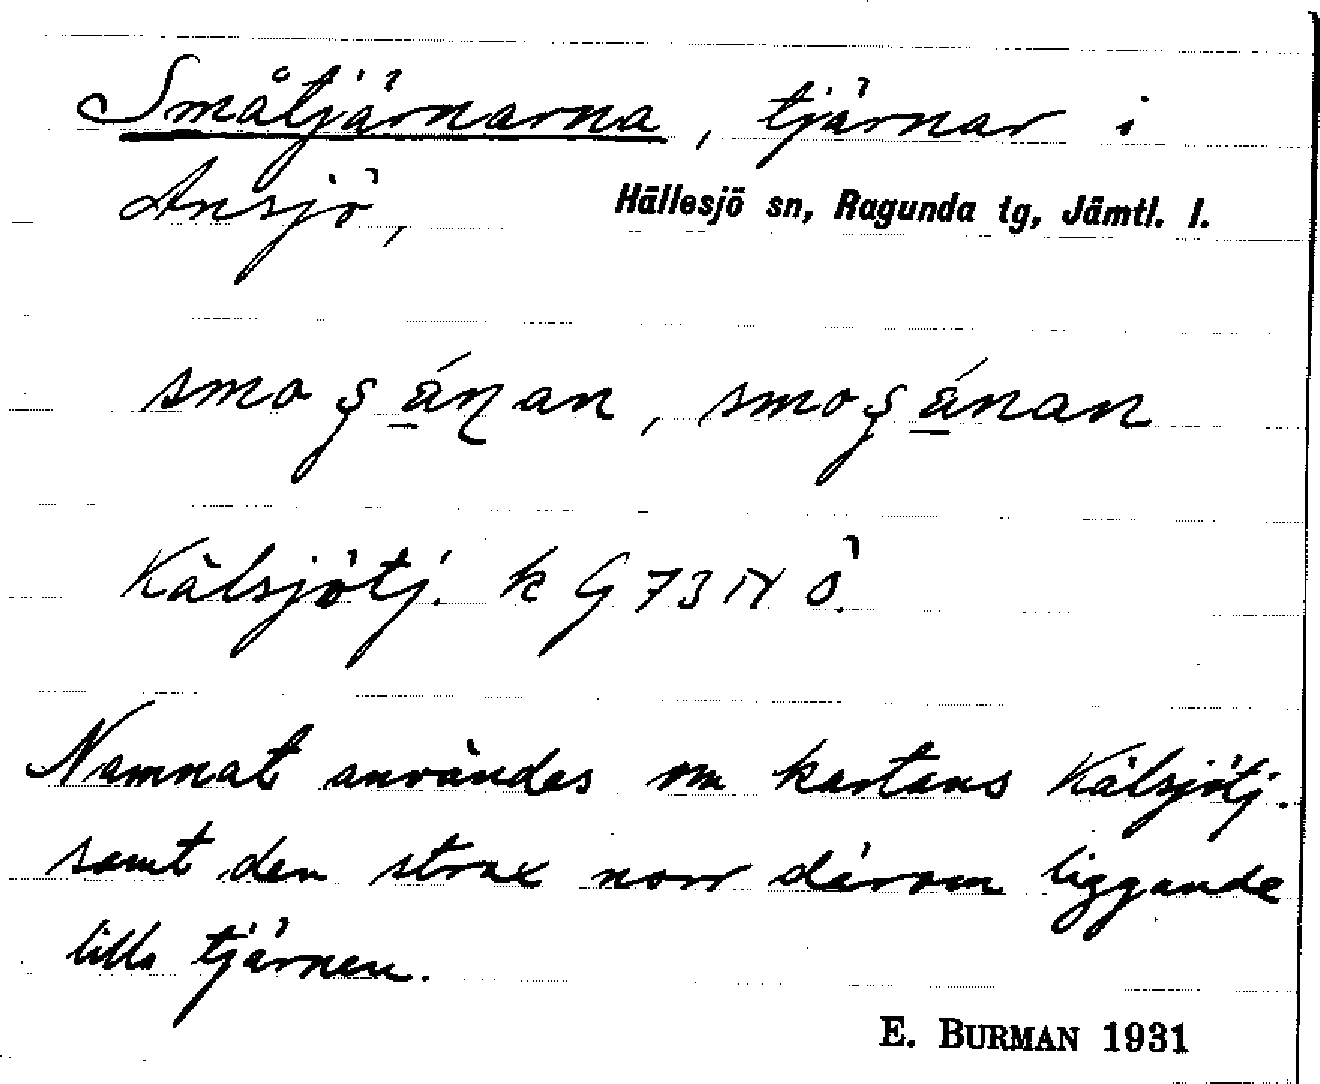 Småtjärnarna, tjärnar i
Ansjö, Hällesjö sn, Ragunda tg, Jämtl. l.
smoʂáɳan, smoʂánan
Kälsjötj. k G 73 N Ö.
Namnat användes om kartans Kälsjötj.
samt den strax norr därom liggande
lilla tjärnen.
E. BURMAN 1931